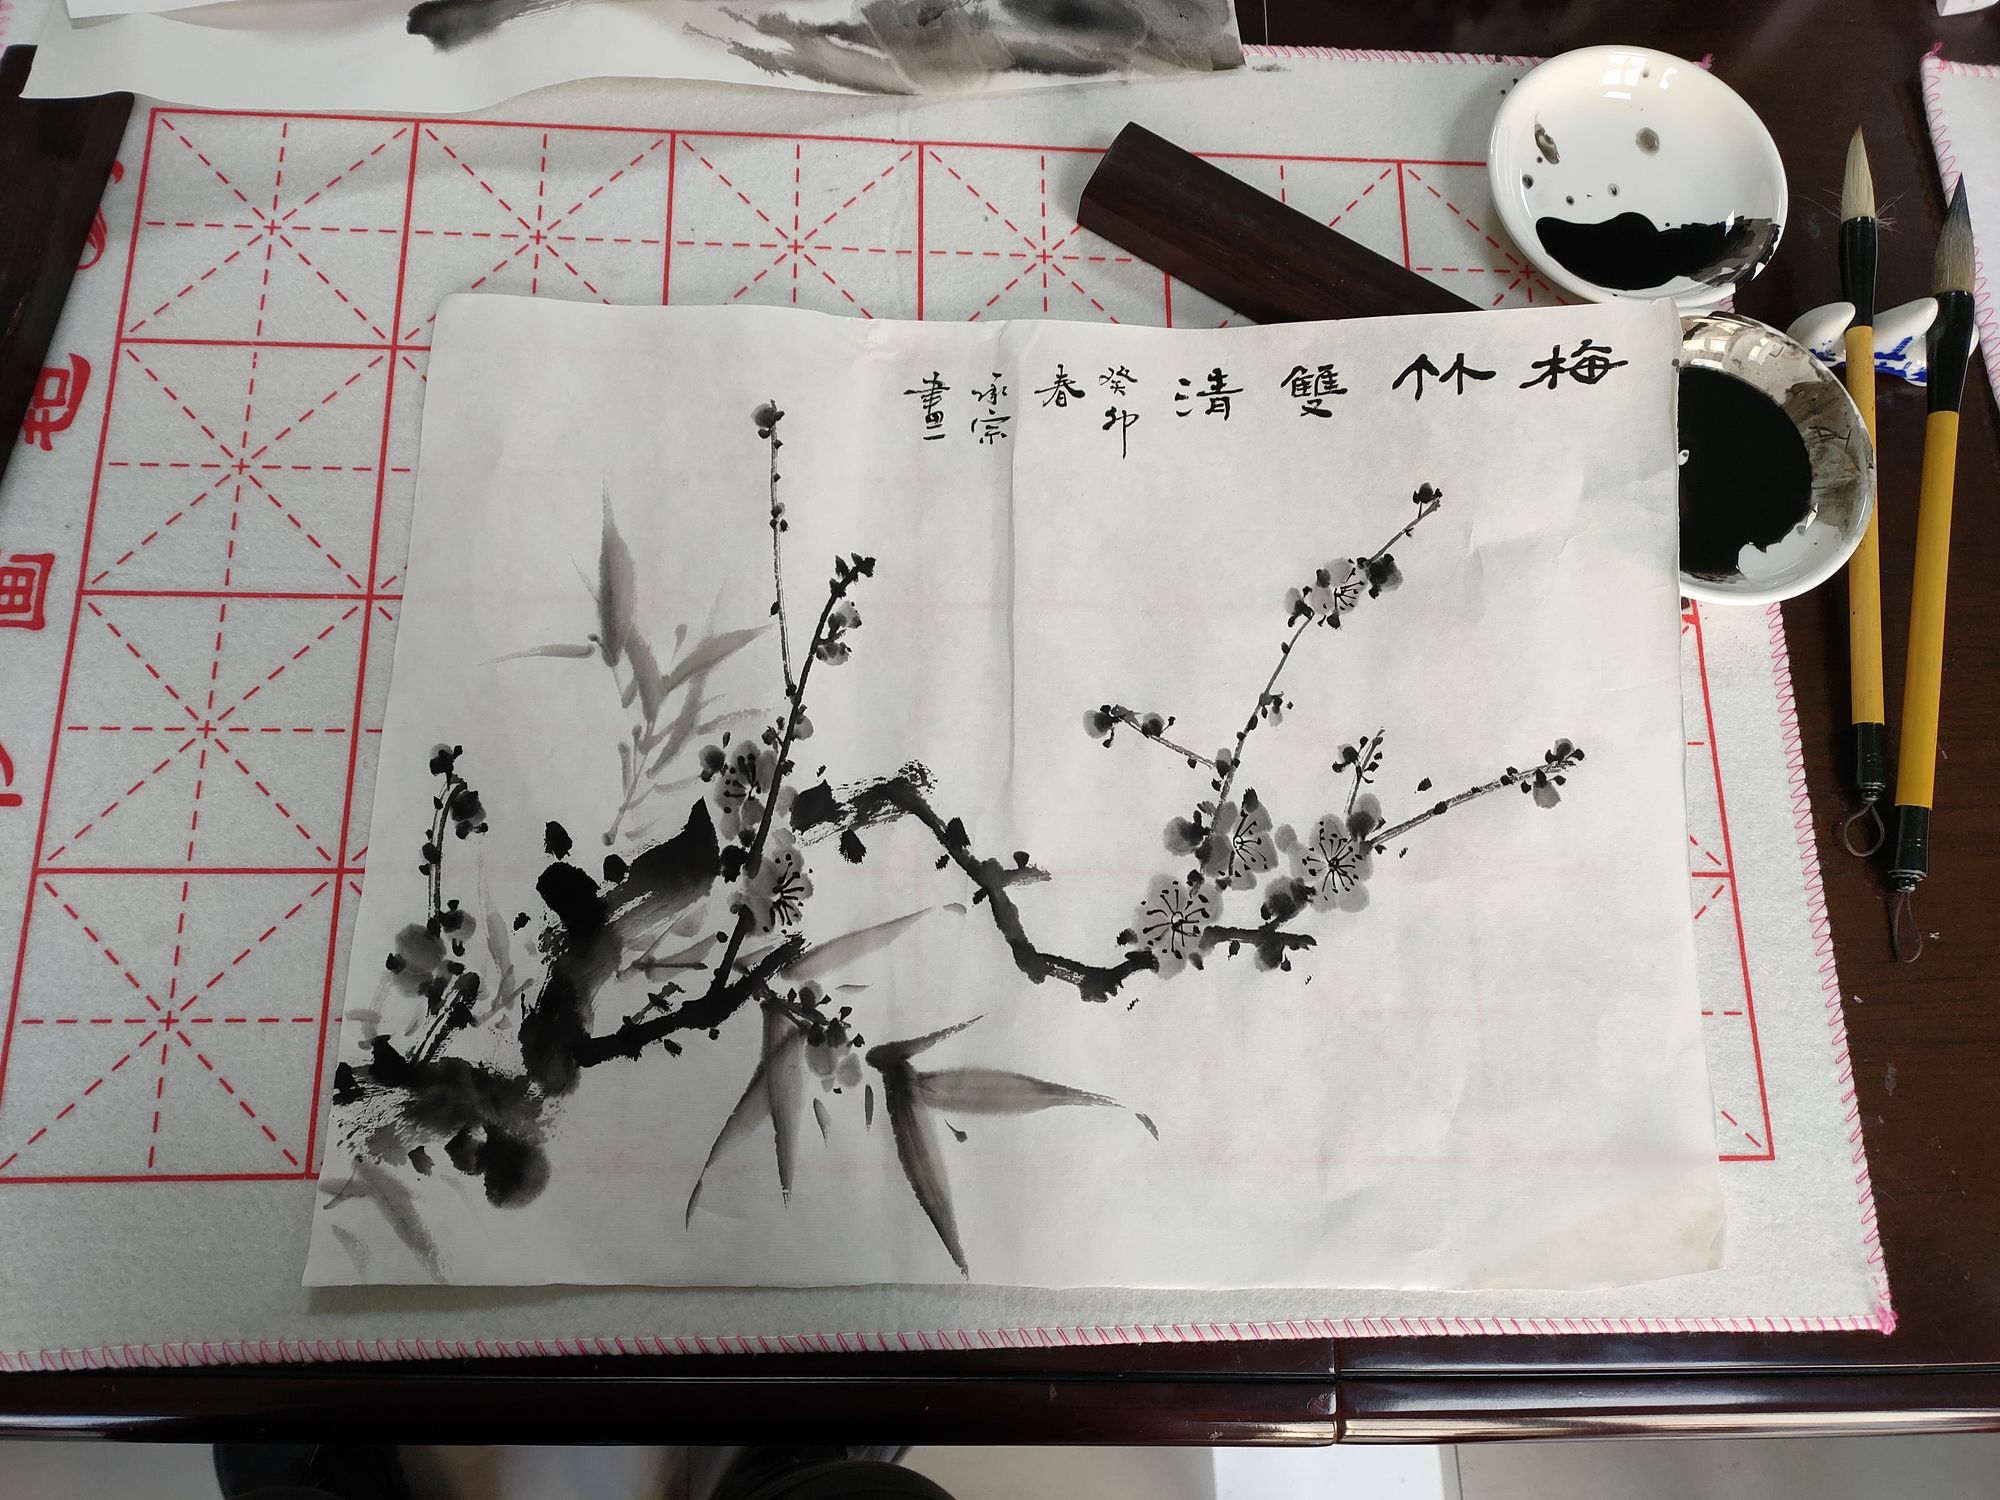 梅竹雙清
癸卯
春
承宗
畫